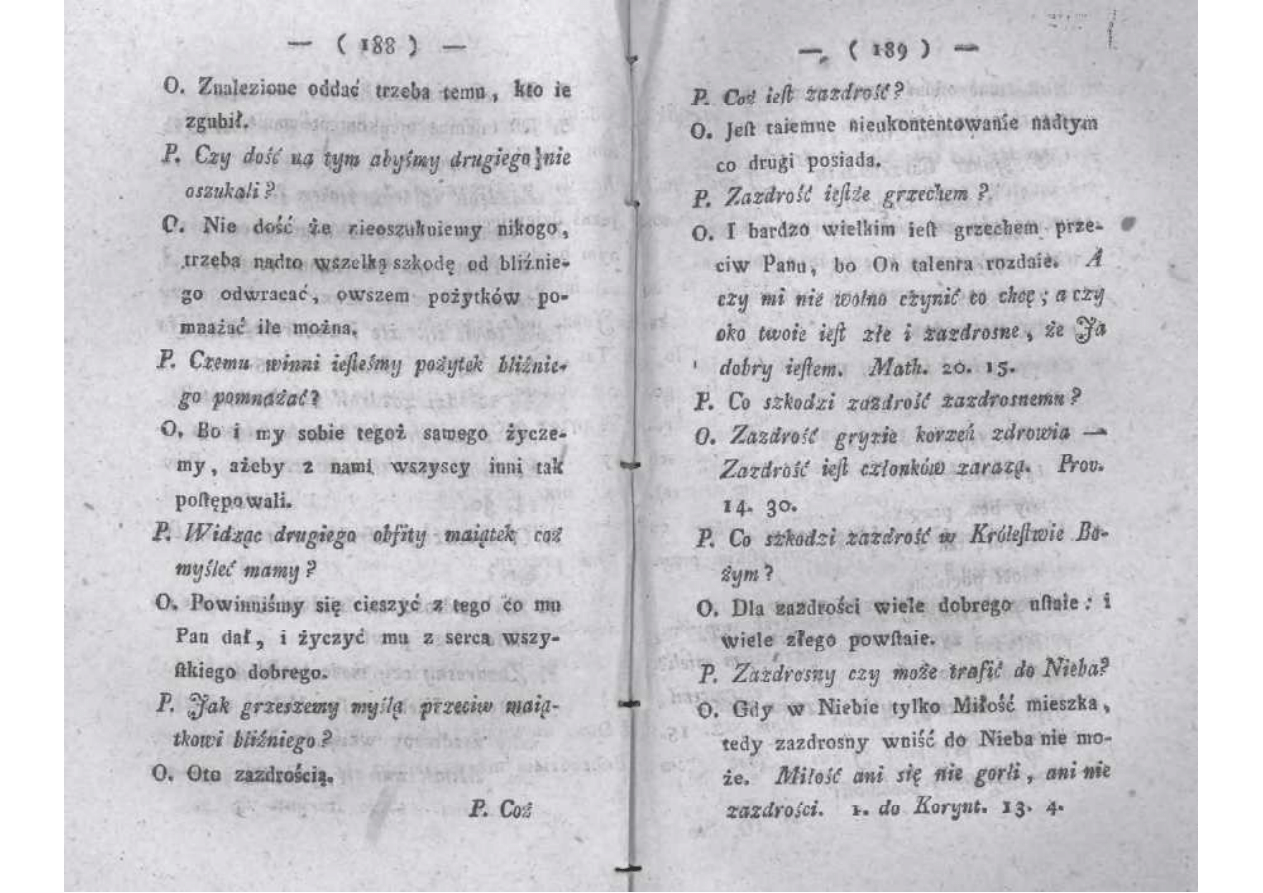 — ( 188 ) —
O. Znalezione oddać trzeba temu, kto ie
zgubił.
P. Czy dość na tym abyśmy drugiego nie
oszukali?
O. Nie dość że nieoszukuiemy nikogo,
trzeba nadto wszelką szkodę od bliźnie-
go odwracać, owszem pożytków po-
mnażać ile można.
P. Czemu winni ieſteśmy pożytek bliźnie-
go pomnażać?
O. Bo i my sobie tegoż samego życze-
my, ażeby z nami wszyscy inni tak
poſtępowali.
P. Widząc drugiego obfity maiątek coż
myśleć mamy?
O. Powinniśmy się cieszyć z tego co mu
Pan dał, i życzyć mu z serca wszy-
ſtkiego dobrego.
P. Jak grzeszemy myślą przeciw maią-
tkowi bliźniego?
O. Oto zazdrością.
P. Coż
— ( 189 ) —
P. Coż ieſt zazdrość?
O. Jeſt taiemne nieukontentowanie nadtym
co drugi posiada.
P. Zazdrość ieſtże grzechem?
O. I bardzo wielkim ieſt grzechem prze-
ciw Panu, bo On talenta rozdaie. A
czy mi nie wolno czynić co chcę; a czy
oko twoie ieſt złe i zazdrosne, że Ja
dobry ieſtem. Math. 20. 15.
P. Co szkodzi zazdrość zazdrosnemu?
O. Zazdrość gryzie korzeń zdrowia —
Zazdrość ieſt członków zarazą. Prov.
14. 30.
P. Co szkodzi zazdrość w Króleſtwie Bo-
żym?
O. Dla zazdrości wiele dobrego uſtaie: i
wiele złego powſtaie.
P. Zazdrosny czy może trafić do Nieba?
O. Gdy w Niebie tylko Miłość mieszka,
tedy zazdrosny wniść do Nieba nie mo-
że. Miłość ani się nie gorſzi, ani nie
zazdrości. 1. do Korynt. 13. 4.